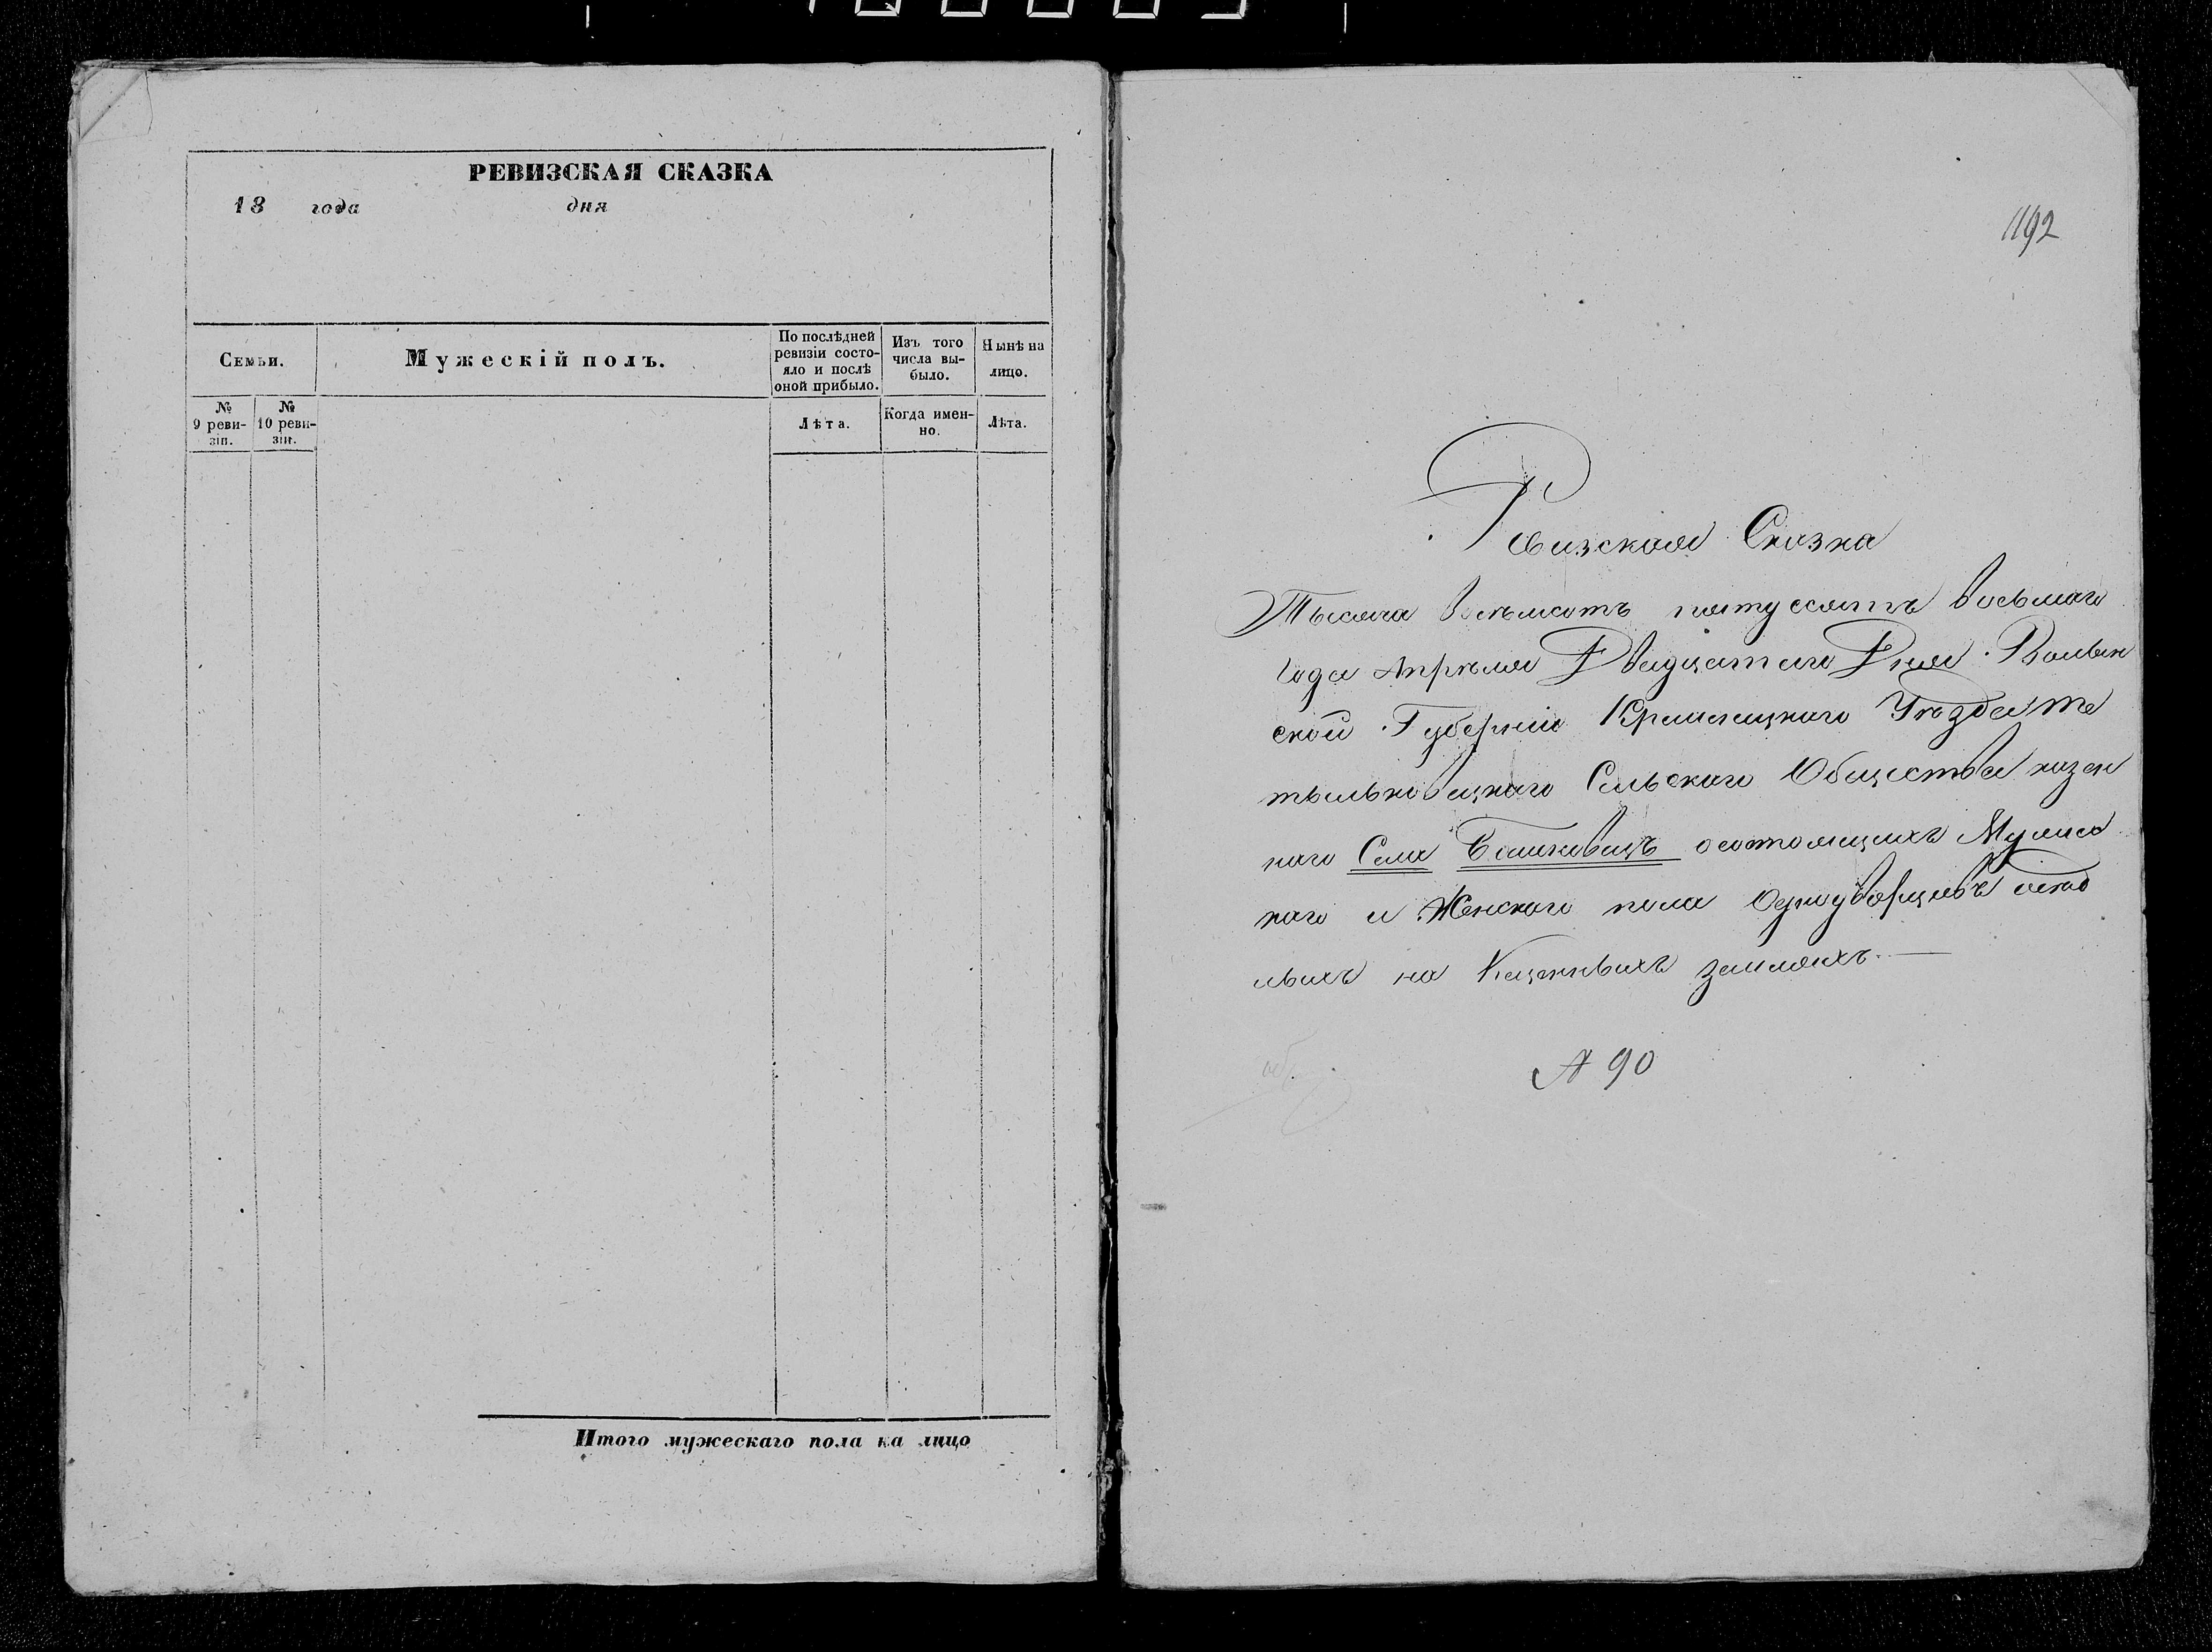 РЕВИЗСКАЯ СКАЗКА
18 года дня
Семьи.
Мужескій полъ.
По послѣдней
ревизіи состо-
яло и послѣ
оной прибыло.
Изъ того
числа вы-
было.
Нынѣ на
лицо.
№
9 реви-
зіи.
№
10 реви-
зіи.
Лѣта.
Когда имен-
но.
Лѣта.
Итого мужескаго пола на лицо
1192
Ревизская Сказка
Тысяча восемьсотъ пятдесятъ восьмаго
года Апрѣля Двадцатаго Дня Волын
ской Губерніи Кременецкаго Уѣзда
Сельскаго Общества казен
наго Села состоящихъ Мужес
каго и Женскаго пола Однодворцовъ осед
лыхъ на Казенныхъ земляхъ.—
90